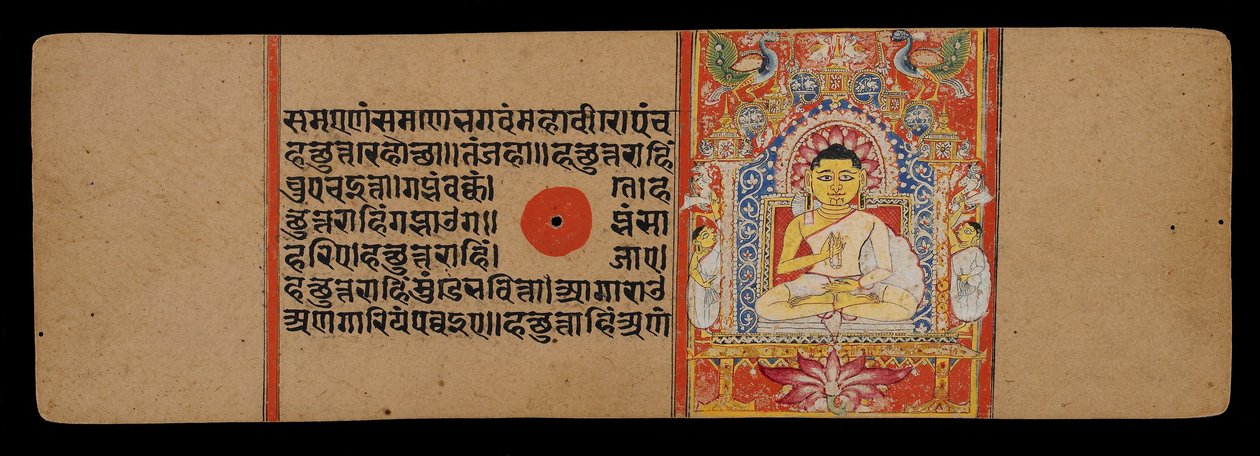 समएणंसमणेभगवंमहावीरेपंच
हत्थुत्तरेहोत्था॥तंजहा॥हत्थुत्तराहिं
चुएचइत्ता।गब्भंवक्कं। ते।ह
त्थुत्तराहिंगब्भाउग॥ ब्भंसा
हरिए।हत्थुत्तराहिं। जाए।
हत्थुत्तराहिंमुंडेभवित्ता।आगाराउ
अणगारियंपव्वइए॥हत्थुत्ताहिंअणं